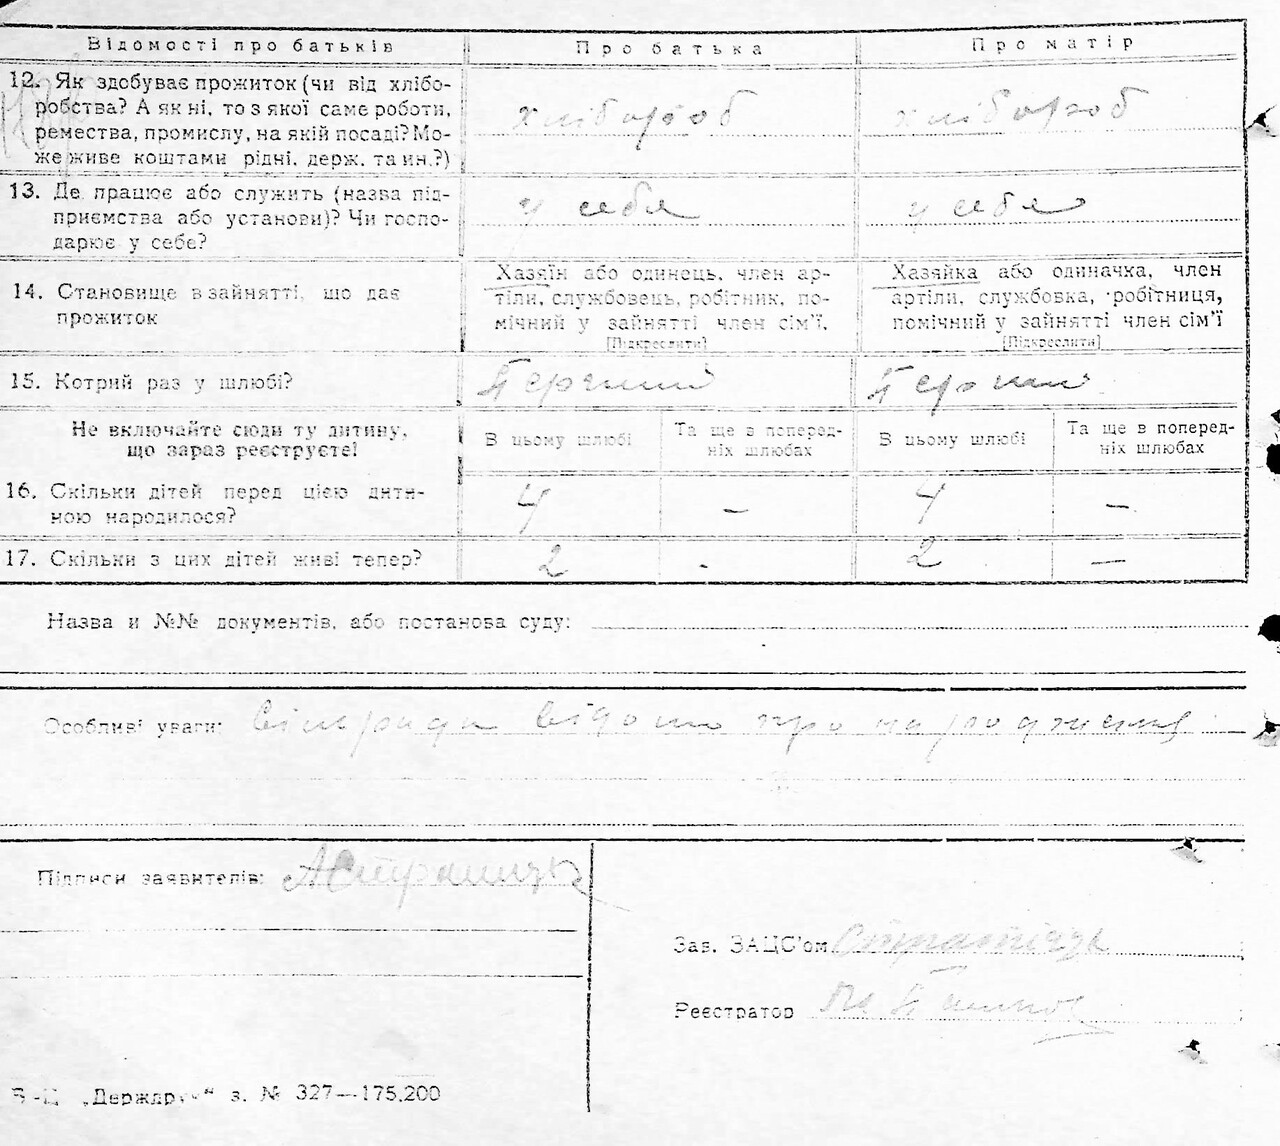 Відомості про батьків Про батька Про матір
12. Як здобуває прожиток (чи від хлібо-
робства? А як ні, то з якої саме роботи,
ремества, промислу, на якій посаді? Мо-
же живе коштами рідні, держ. та ин.?)
хлібороб хлібороб
13. Де працює або служить (назва під-
приємства або установи)? Чи госпо-
дарює у себе?
у себе у себе
14. Становище в занятті, що дає
прожиток
Хазяїн або одинець, член ар-
тіли, службовець, робітник, по-
мічний у зайнятті член сім'ї.
[Підкреслити]
Хазяйка або одиначка, член
артіли, службовка, робітниця,
помічний у зайнятті член сім'ї
[Підкреслити]
15. Котрий раз у шлюбі? Перший Перший
Не включайте сюди ту дитину,
що зараз реєструєте!
В цьому шлюбі Та ще в поперед-
ніх шлюбах
В цьому шлюбі Та ще в поперед-
ніх шлюбах
16. Скільки дітей перед цією дити-
ною народилося?
4 – 4 –
17. Скільки з цих дітей живі тепер? 2 . 2 –
Назва и №№ документів, або постанова суду:
Особливі уваги: про народження
Підписи заявителів:
Зав. ЗАЦС'ом
Реєстратор
В-Ц „Держдрук“ з. № 327—175.200